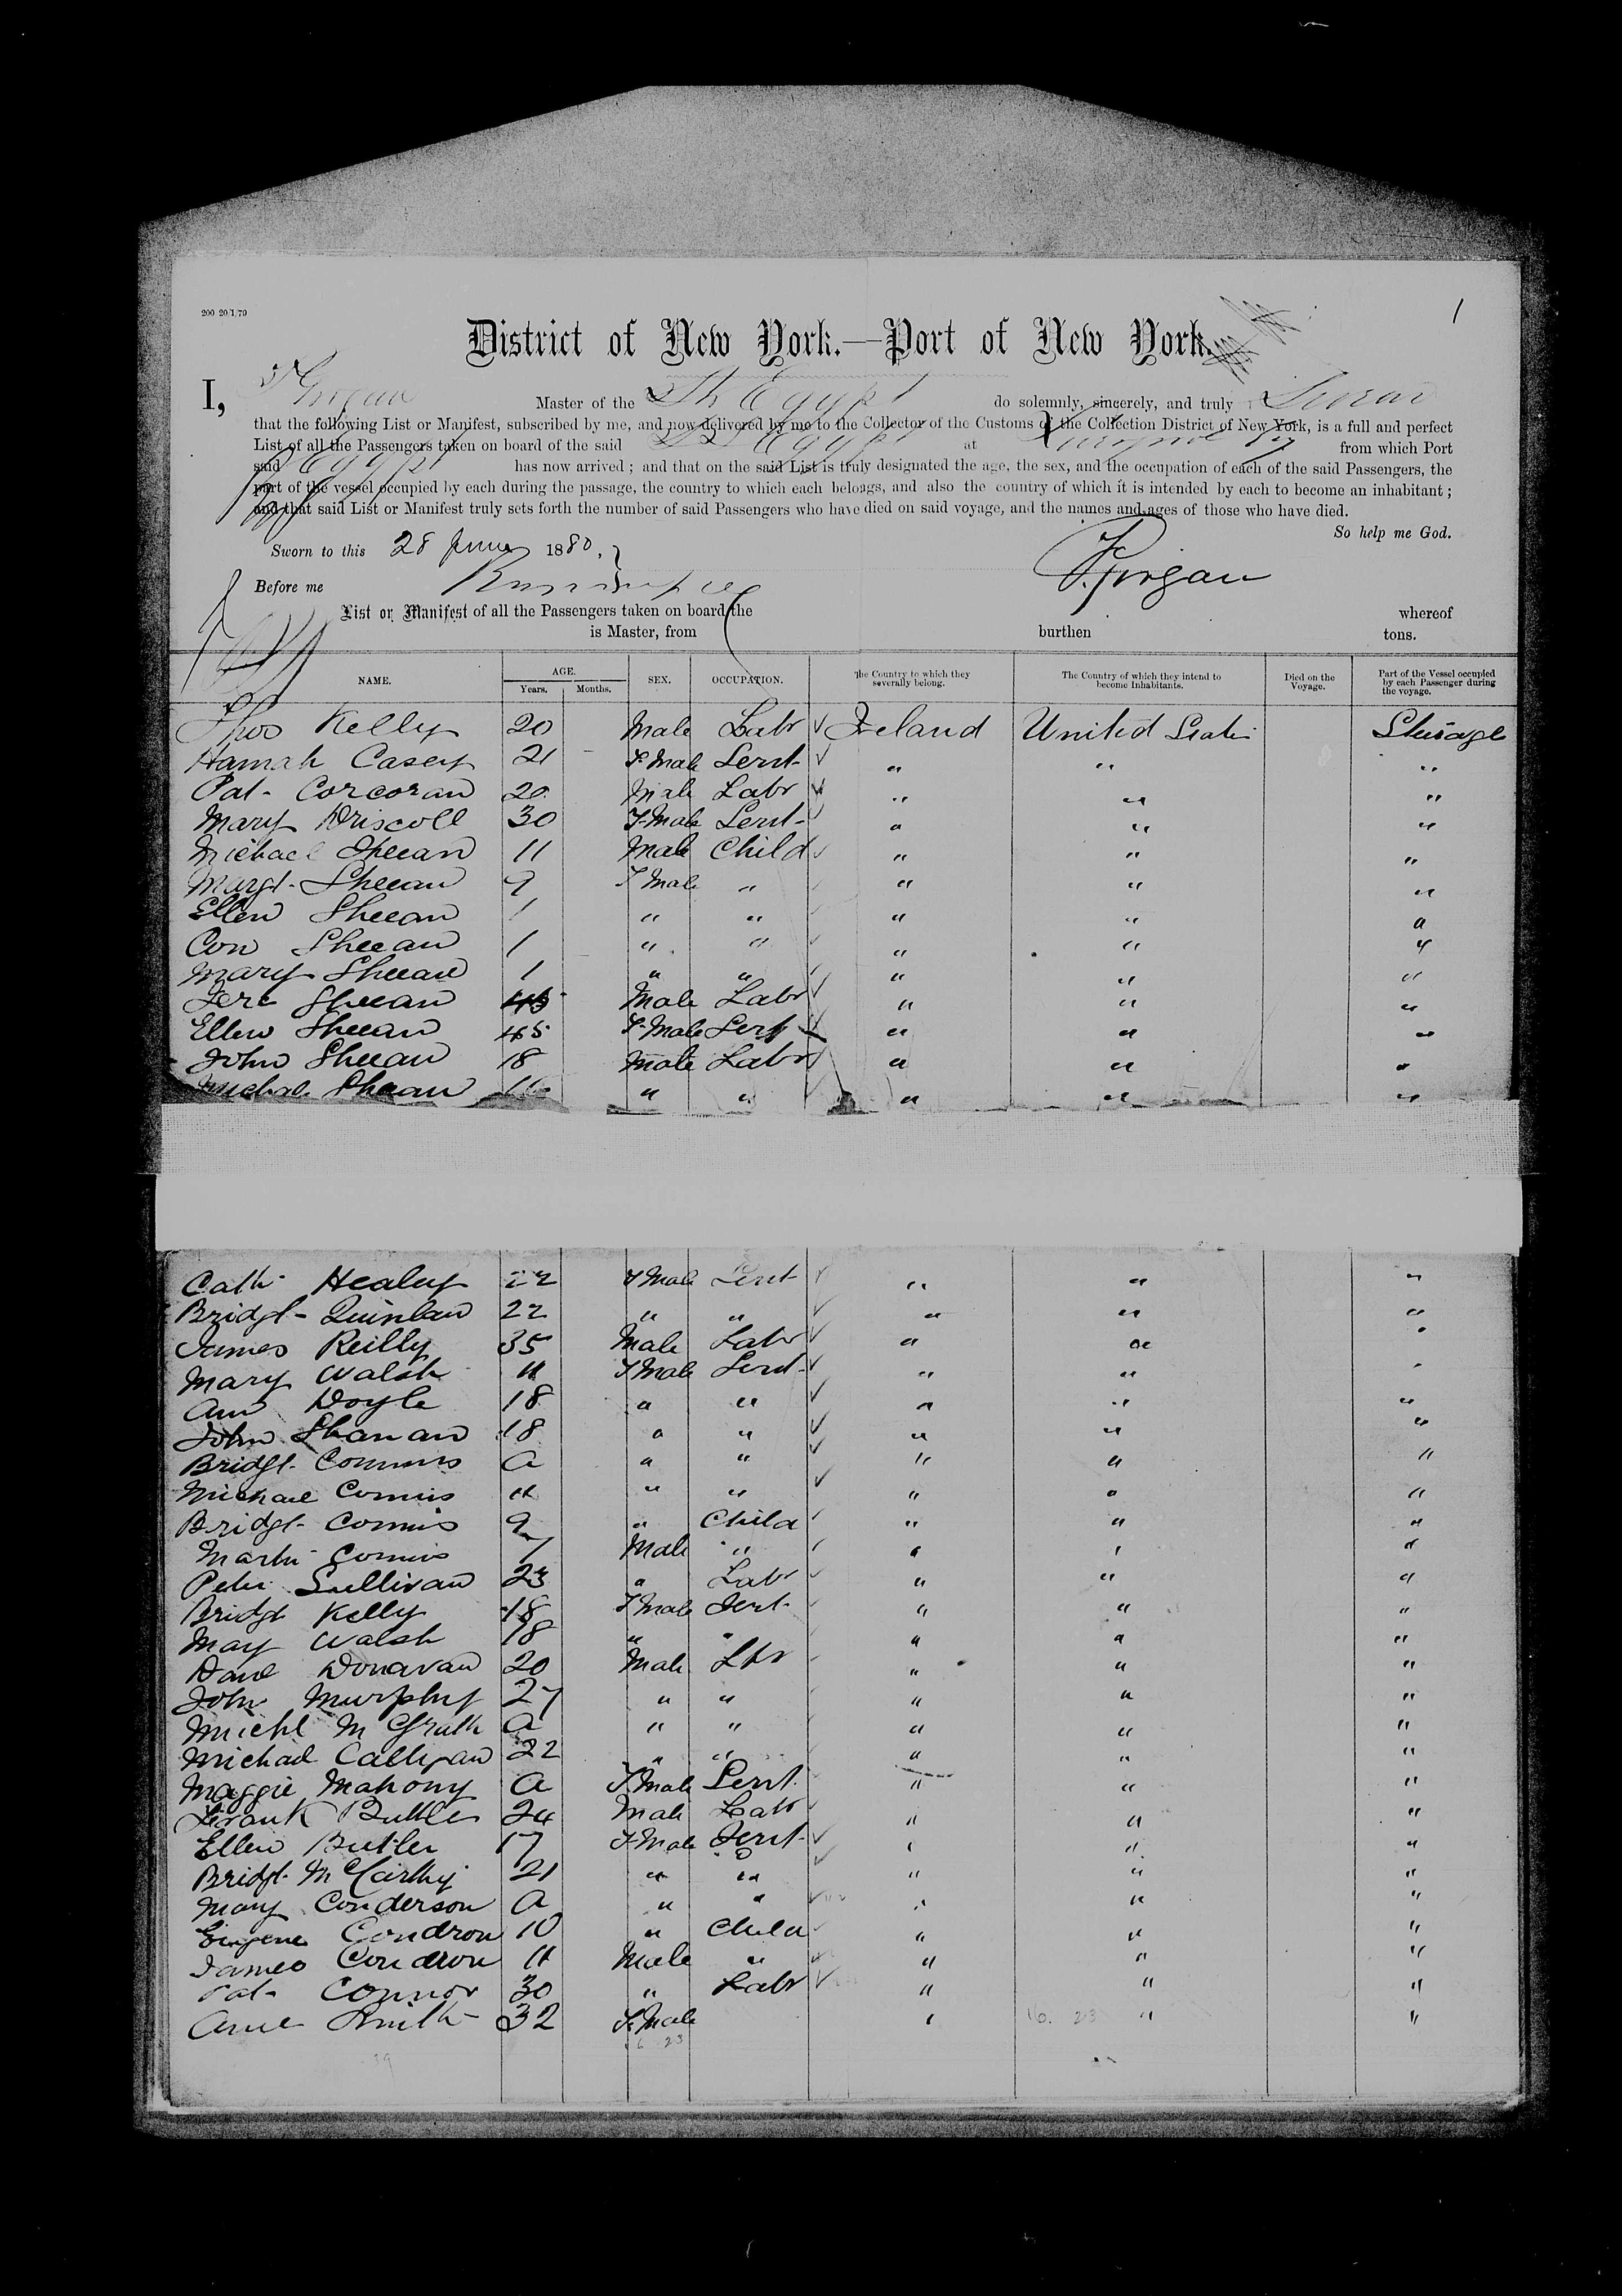 200 20/1/79
1
District of New York.—Port of New York.
I, Master of the Str Egypt do solemnly, sincerely, and truly Swear
that the following List or Manifest, subscribed by me, and now delivered by me to the Collector of the Customs of the Collection District of New York, is a full and perfect
List of all the Passengers taken on board of the said SS Egypt at from which Port
said Egypt has now arrived; and that on the said List is truly designated the age, the sex, and the occupation of each of the said Passengers, the
part of the vessel occupied by each during the passage, the country to which each belongs, and also the country of which it is intended by each to become an inhabitant;
and that said List or Manifest truly sets forth the number of said Passengers who have died on said voyage, and the names and ages of those who have died.
So help me God.
Sworn to this 28 June 1880.
Before me
List or Manifest of all the Passengers taken on board the whereof
is Master, from burthen tons.
NAME. AGE. Years. Months. SEX. OCCUPATION. The Country to which they severally belong. The Country of which they intend to become Inhabitants. Died on the Voyage. Part of the Vessel occupied by each Passenger during the voyage.
Thos Kelly 20 Male Labr Ireland United States Steerage
Hannah Casey 21 F.Male Servt " " "
Pat. Corcoran 20 Male Labr " " "
Mary Driscoll 30 F.Male Servt " " "
Michael Sheean 11 Male Child " " "
Margt. Sheean 9 F Male " " " "
Ellen Sheean 1 " " " " "
Con Sheean 1 " " " " "
Mary Sheean 1 " " " " "
Jere Sheean 45 Male Labr " " "
Ellen Sheean 45 F.Male Servt " " "
John Sheean 18 Male Labr " " "
Michal. Sheean " " " " "
Cath Healey 22 F Male Servt " " "
Bridgt- Quinlan 22 " " " " "
James Reilly 35 Male Labr " " "
Mary Walsh " F Male Servt " " "
Ann Doyle 18 " " " " "
John Shanan 18 " " " " "
Bridgt. Commis a " " " " "
Michael Commis " " " " " "
Bridgt- Commis 9 " Child " " "
Martin Commis 7 Male " " " "
Peter Sullivan 23 " Labr " " "
Bridgt Kelly 18 F Male Servt " " "
May Walsh 18 " " " " "
Danl Donavan 20 Male Lbr " " "
John Murphy 27 " " " " "
Michl McGrath a " " " " "
Michael Calligan 22 " " " " "
Maggie Mahony a F.Male Servt. " " "
Frank Butler 24 Male Labr " " "
Ellen Butler 17 F.Male Servt " " "
Bridgt. McCarthy 21 " " " " "
Mary Conderson a " " " " "
Eugene Condron 10 " Child " " "
James Condron 11 Male " " " "
Pat- Connor 30 " Labr " " "
Anne Smith 32 F.Male " " "